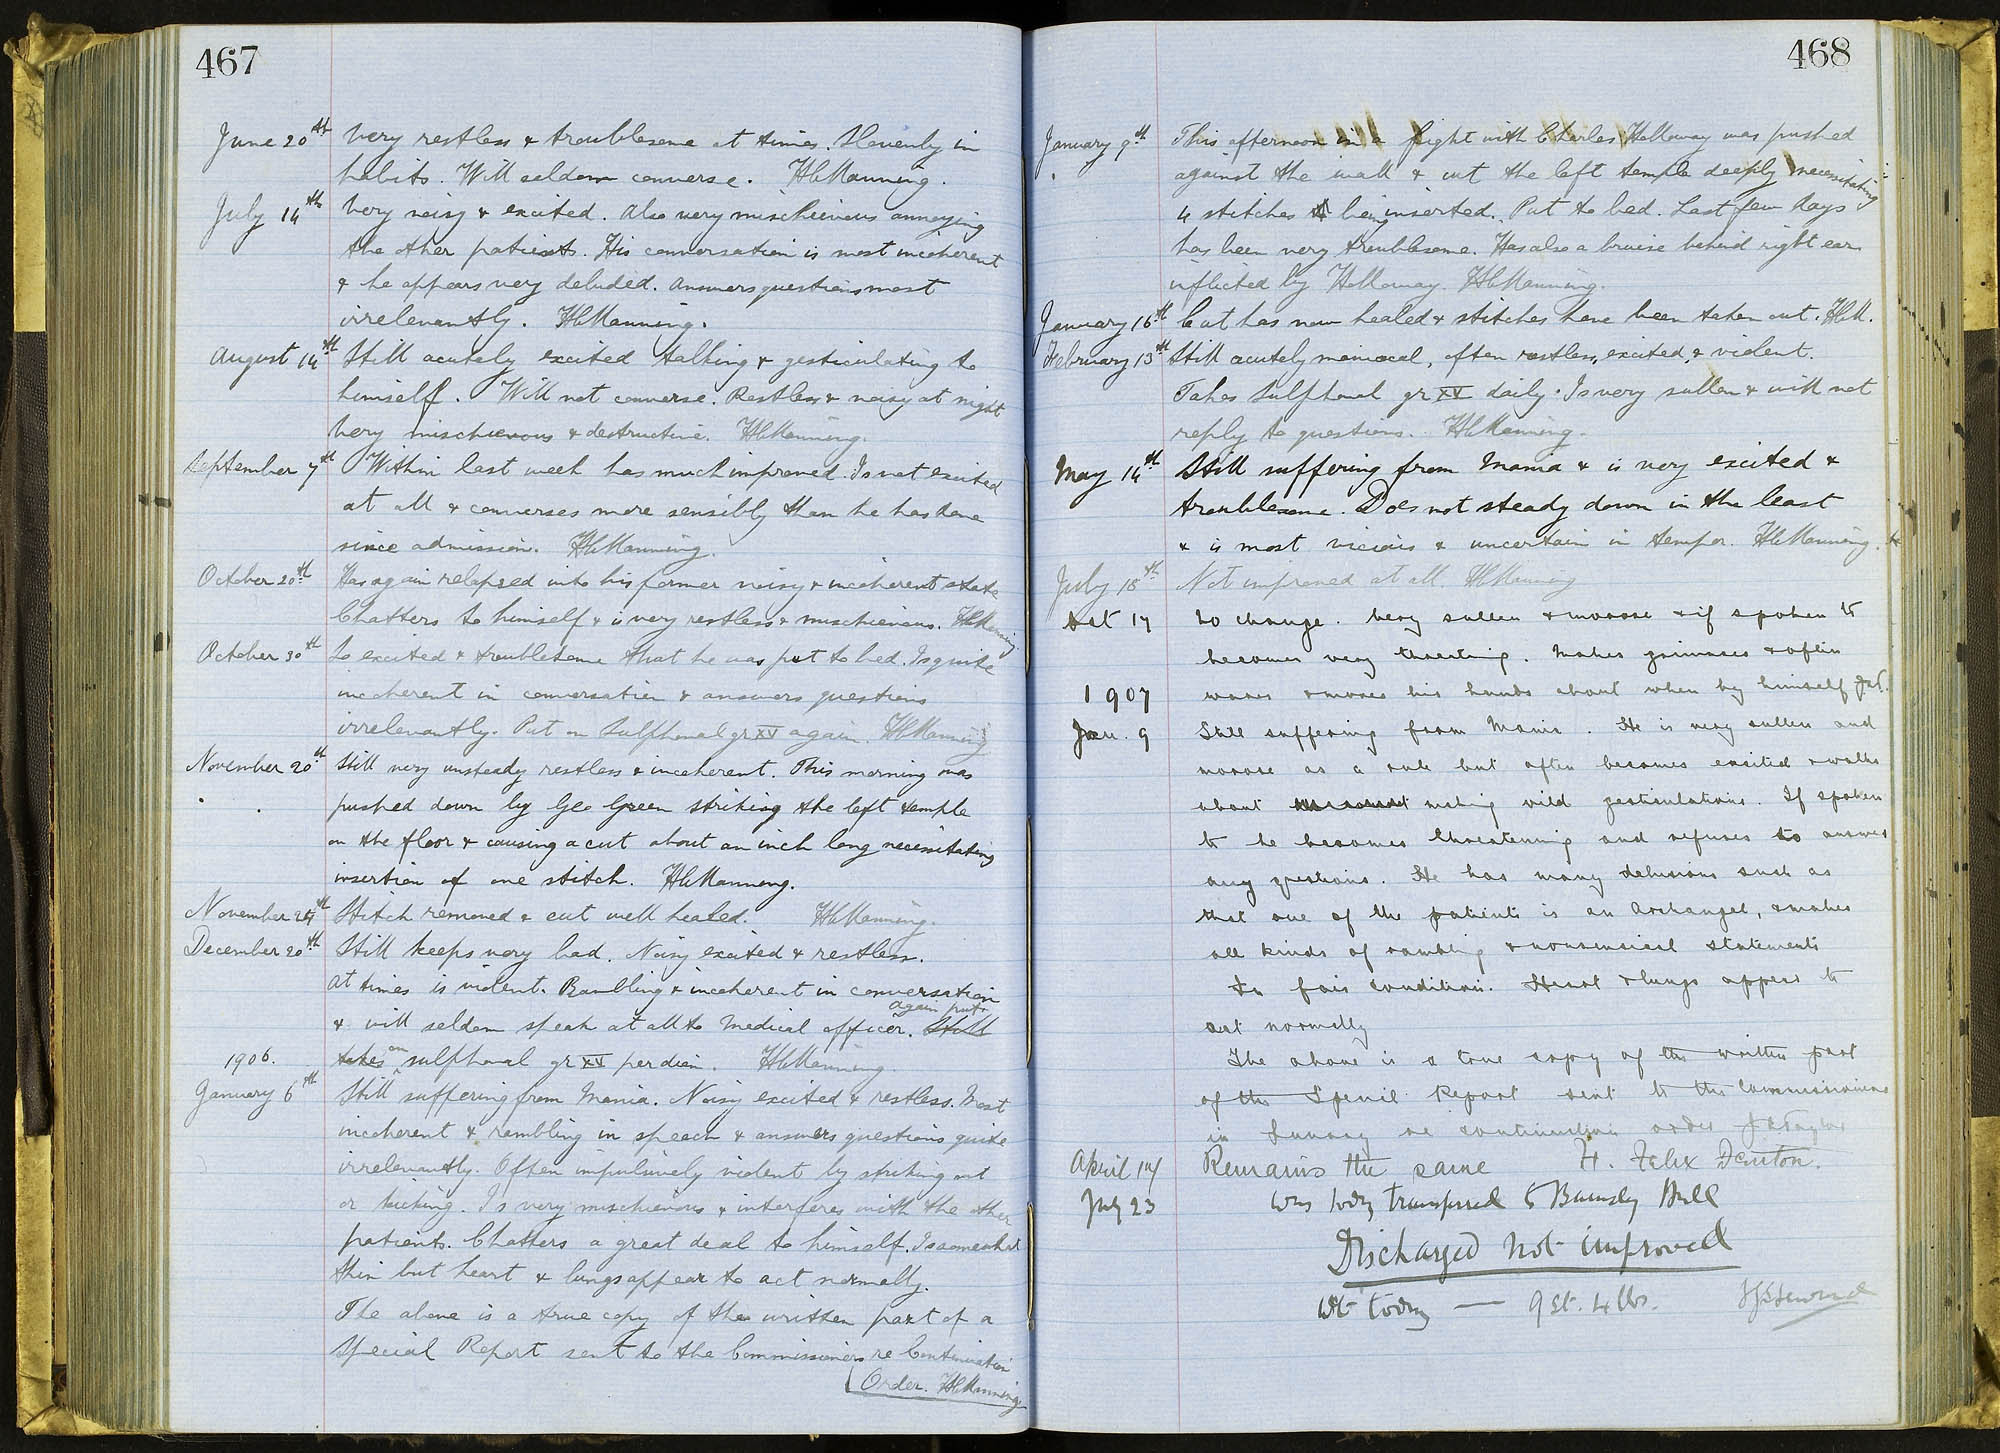 467
June 20th Very restless & troublesome at times. Slovenly in
habits. Will seldom converse. H C Manning.
July 14th Very noisy & excited. Also very mischievous annoying
the other patients. His conversation is most incoherent
& he appears very deluded. Answers questions most
irrelevantly. H C Manning.
August 14th Still acutely excited talking & gesticulating to
himself. Will not converse. Restless & noisy at night
Very mischievous & destructive. H C Manning.
September 7th Within last week has much improved. Is not excited
at all & converses more sensibly than he has done
since admission. H C Manning.
October 20th Has again relapsed into his former noisy & incoherent state
Chatters to himself & is very restless & mischievous. H C Manning
October 30th So excited & troublesome that he was put to bed. Is quite
incoherent in conversation & answers questions
irrelevantly. Put on Sulphonal gr XV again. H C Manning
November 20th Still very unsteady restless & incoherent. This morning was
pushed down by Geo Green striking the left temple
on the floor & causing a cut about an inch long necessitating
insertion of one stitch. H C Manning.
November 24th Stitch removed & cut well healed. H C Manning.
December 20th Still keeps very bad. Noisy excited & restless.
At times is violent. Rambling & incoherent in conversation
& will seldom speak at all to Medical officer. Still again put
1906. takes on sulphonal gr XV per diem. H C Manning.
January 6th Still suffering from Mania. Noisy excited & restless. Most
incoherent & rambling in speech & answers questions quite
irrelevantly. Often impulsively violent by striking out
or kicking. Is very mischievous & interferes with the other
patients. Chatters a great deal to himself. Is somewhat
thin but heart & lungs appear to act normally.
The above is a true copy of the written part of a
Special Report sent to the Commissioners re Continuation
Order. H C Manning
468
January 9th This afternoon in a fight with Charles Holloway was pushed
against the wall & cut the left temple deeply necessitating
4 stitches being inserted. Put to bed. Last few days
has been very troublesome. Has also a bruise behind right ear
inflicted by Holloway. H C Manning.
January 16th Cut has now healed & stitches have been taken out. H C M.
February 13th Still acutely maniacal, often restless, excited & violent.
Takes Sulphonal gr XV daily. Is very sullen & will not
reply to questions. H C Manning.
May 14th Still suffering from Mania & is very excited &
troublesome. Does not steady down in the least
& is most vicious & uncertain in temper. H C Manning.
July 18th Not improved at all. H C Manning
Oct 17 No change. Very sullen & morose & if spoken to
becomes very threatening. Makes grimaces & often
1907 waves & moves his hands about when by himself
Jan. 9 Still suffering from Mania. He is very sullen and
morose as a rule but often becomes excited & walks
about making wild gesticulations. If spoken
to he becomes threatening and refuses to answer
any questions. He has many delusions such as
that one of the patients is an Archangel, & makes
all kinds of rambling & nonsensical statements
In fair condition. Heart & lungs appear to
act normally
The above is a true copy of the written part
of the Special Report sent to the Commissioners
in January re continuation order J R Taylor
April 14 Remains the same H. Felix Fenton.
July 23 Was today transferred to Barnsley Hall
Discharged Not improved
Wt today — 9 st. 4 lbs.